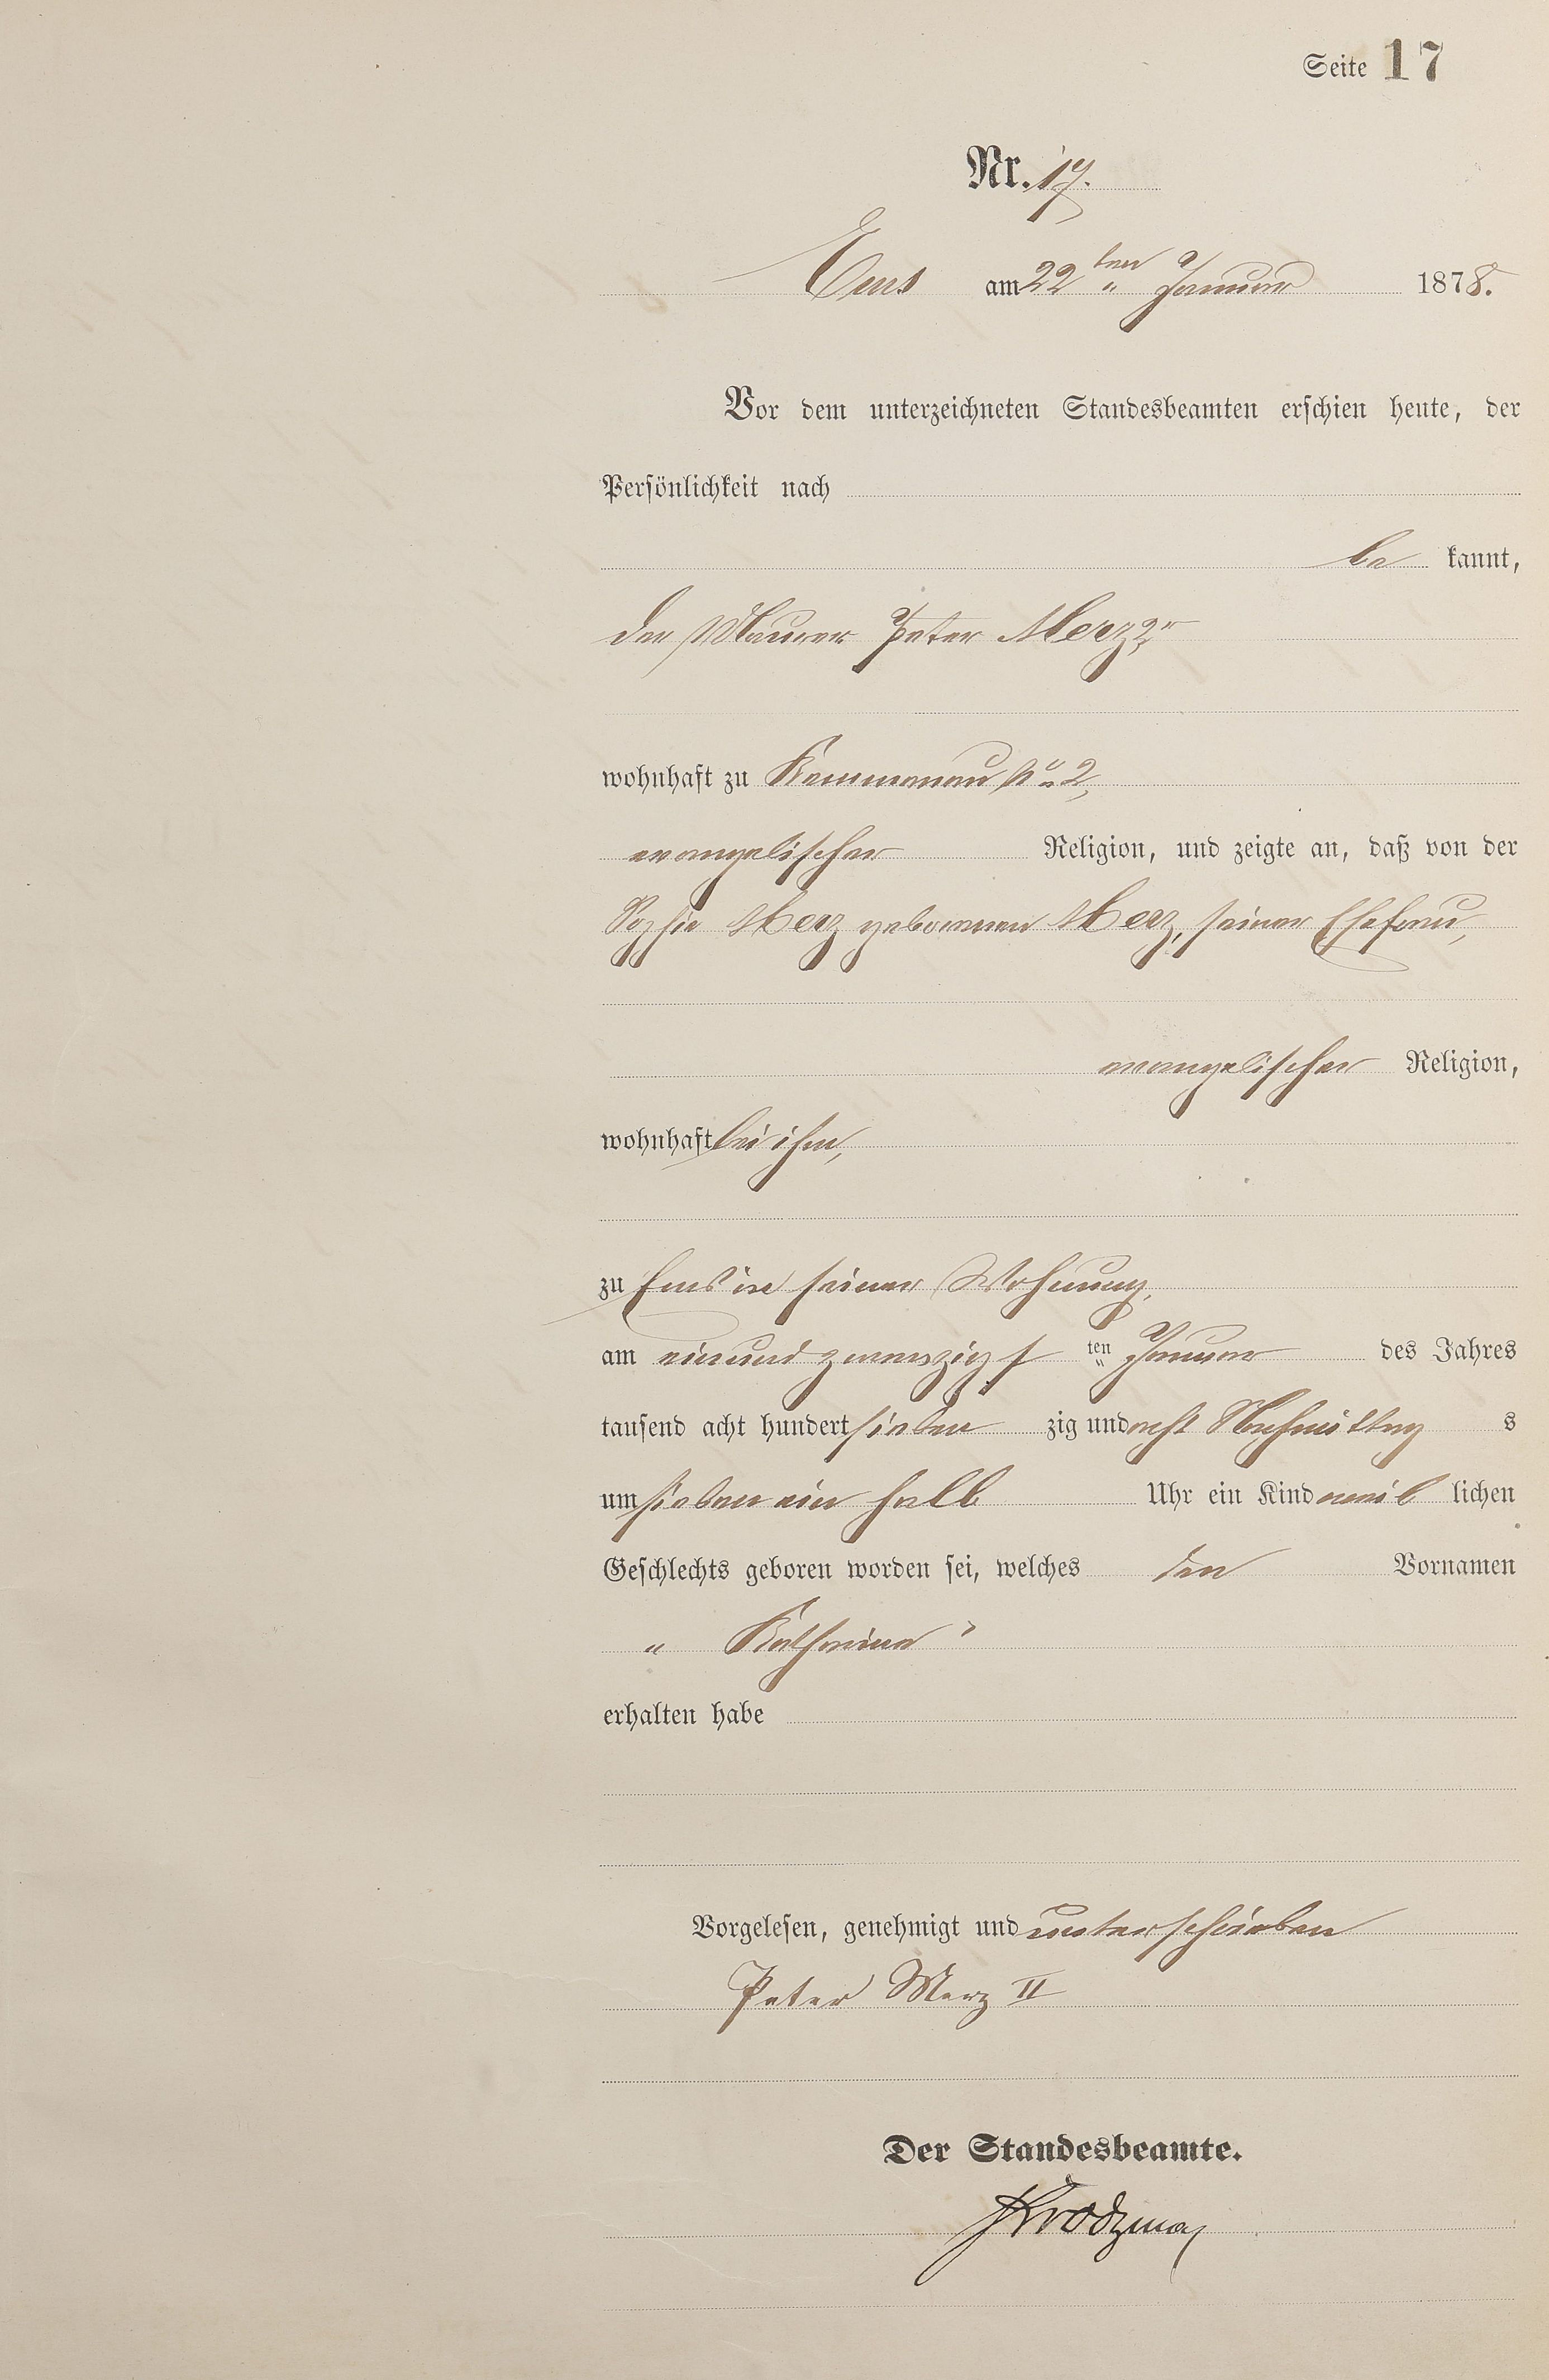 Seite 17
Nr. 17.
Ems am 22ten Januar 1878.
Vor dem unterzeichneten Standesbeamten erschien heute, der
Persönlichkeit nach
be kannt,
der Maurer Peter Merz 2r
wohnhaft zu Kemmenau No 2,
evangelischer Religion, und zeigte an, daß von der
Sophie Merz geborenen Merz, seiner Ehefrau,
evangelischer Religion,
wohnhaft bei ihm,
zu Ems in seiner Wohnung,
am einundzwanzigsten Januar des Jahres
tausend acht hundert sieben zig und acht Nachmittag s
um sieben ein halb Uhr ein Kind weib lichen
Geschlechts geboren worden sei, welches den Vornamen
„ Katharina "
erhalten habe
Vorgelesen, genehmigt und unterschrieben
Peter Merz II
Der Standesbeamte.